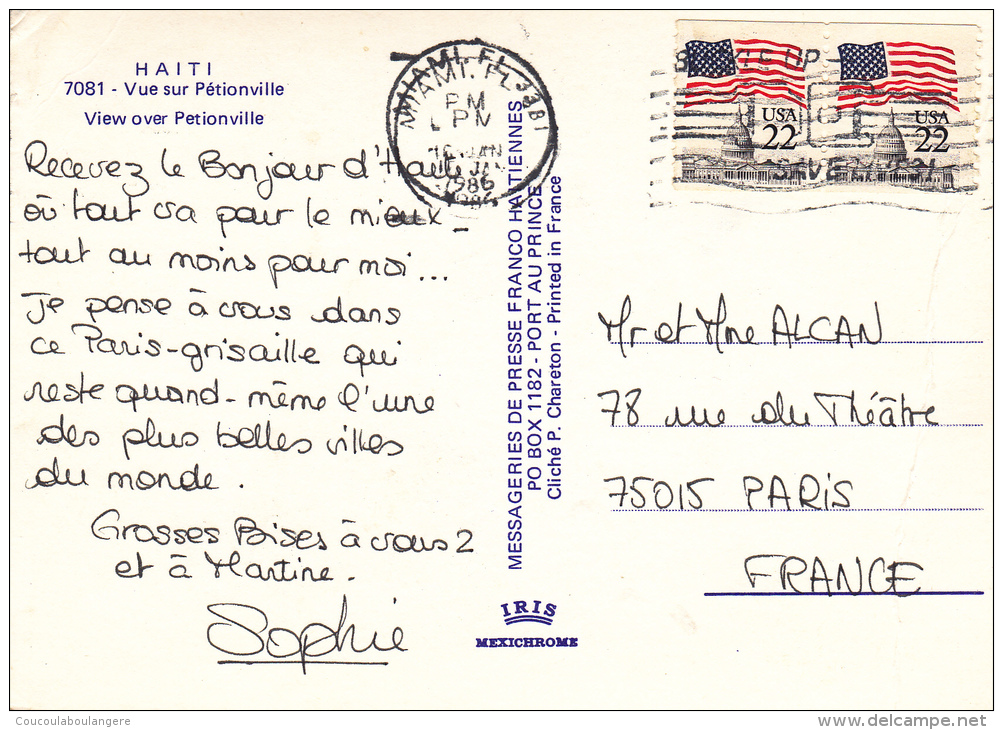 HAITI
7081 - Vue sur Pétionville
View over Petionville
Recevez le Bonjour d'Haïti
où tout va pour le mieux _
tout au moins pour moi...
Je pense à vous dans
ce Paris-grisaille qui
reste quand-même l'une
des plus belles villes
du monde.
Grosses Bises à vous 2
et à Martine.
Sophie
MIAMI, FL
PM
JAN
1986
MESSAGERIES DE PRESSE FRANCO HAITIENNES
PO BOX 1182 - PORT AU PRINCE
Cliché P. Chareton - Printed in France
IRIS
MEXICHROME
USA
22
USA
22
Mr et Mme ALCAN
78 rue du Théâtre
75015 PARIS
FRANCE
Coucoulaboulangere
delcampe.net